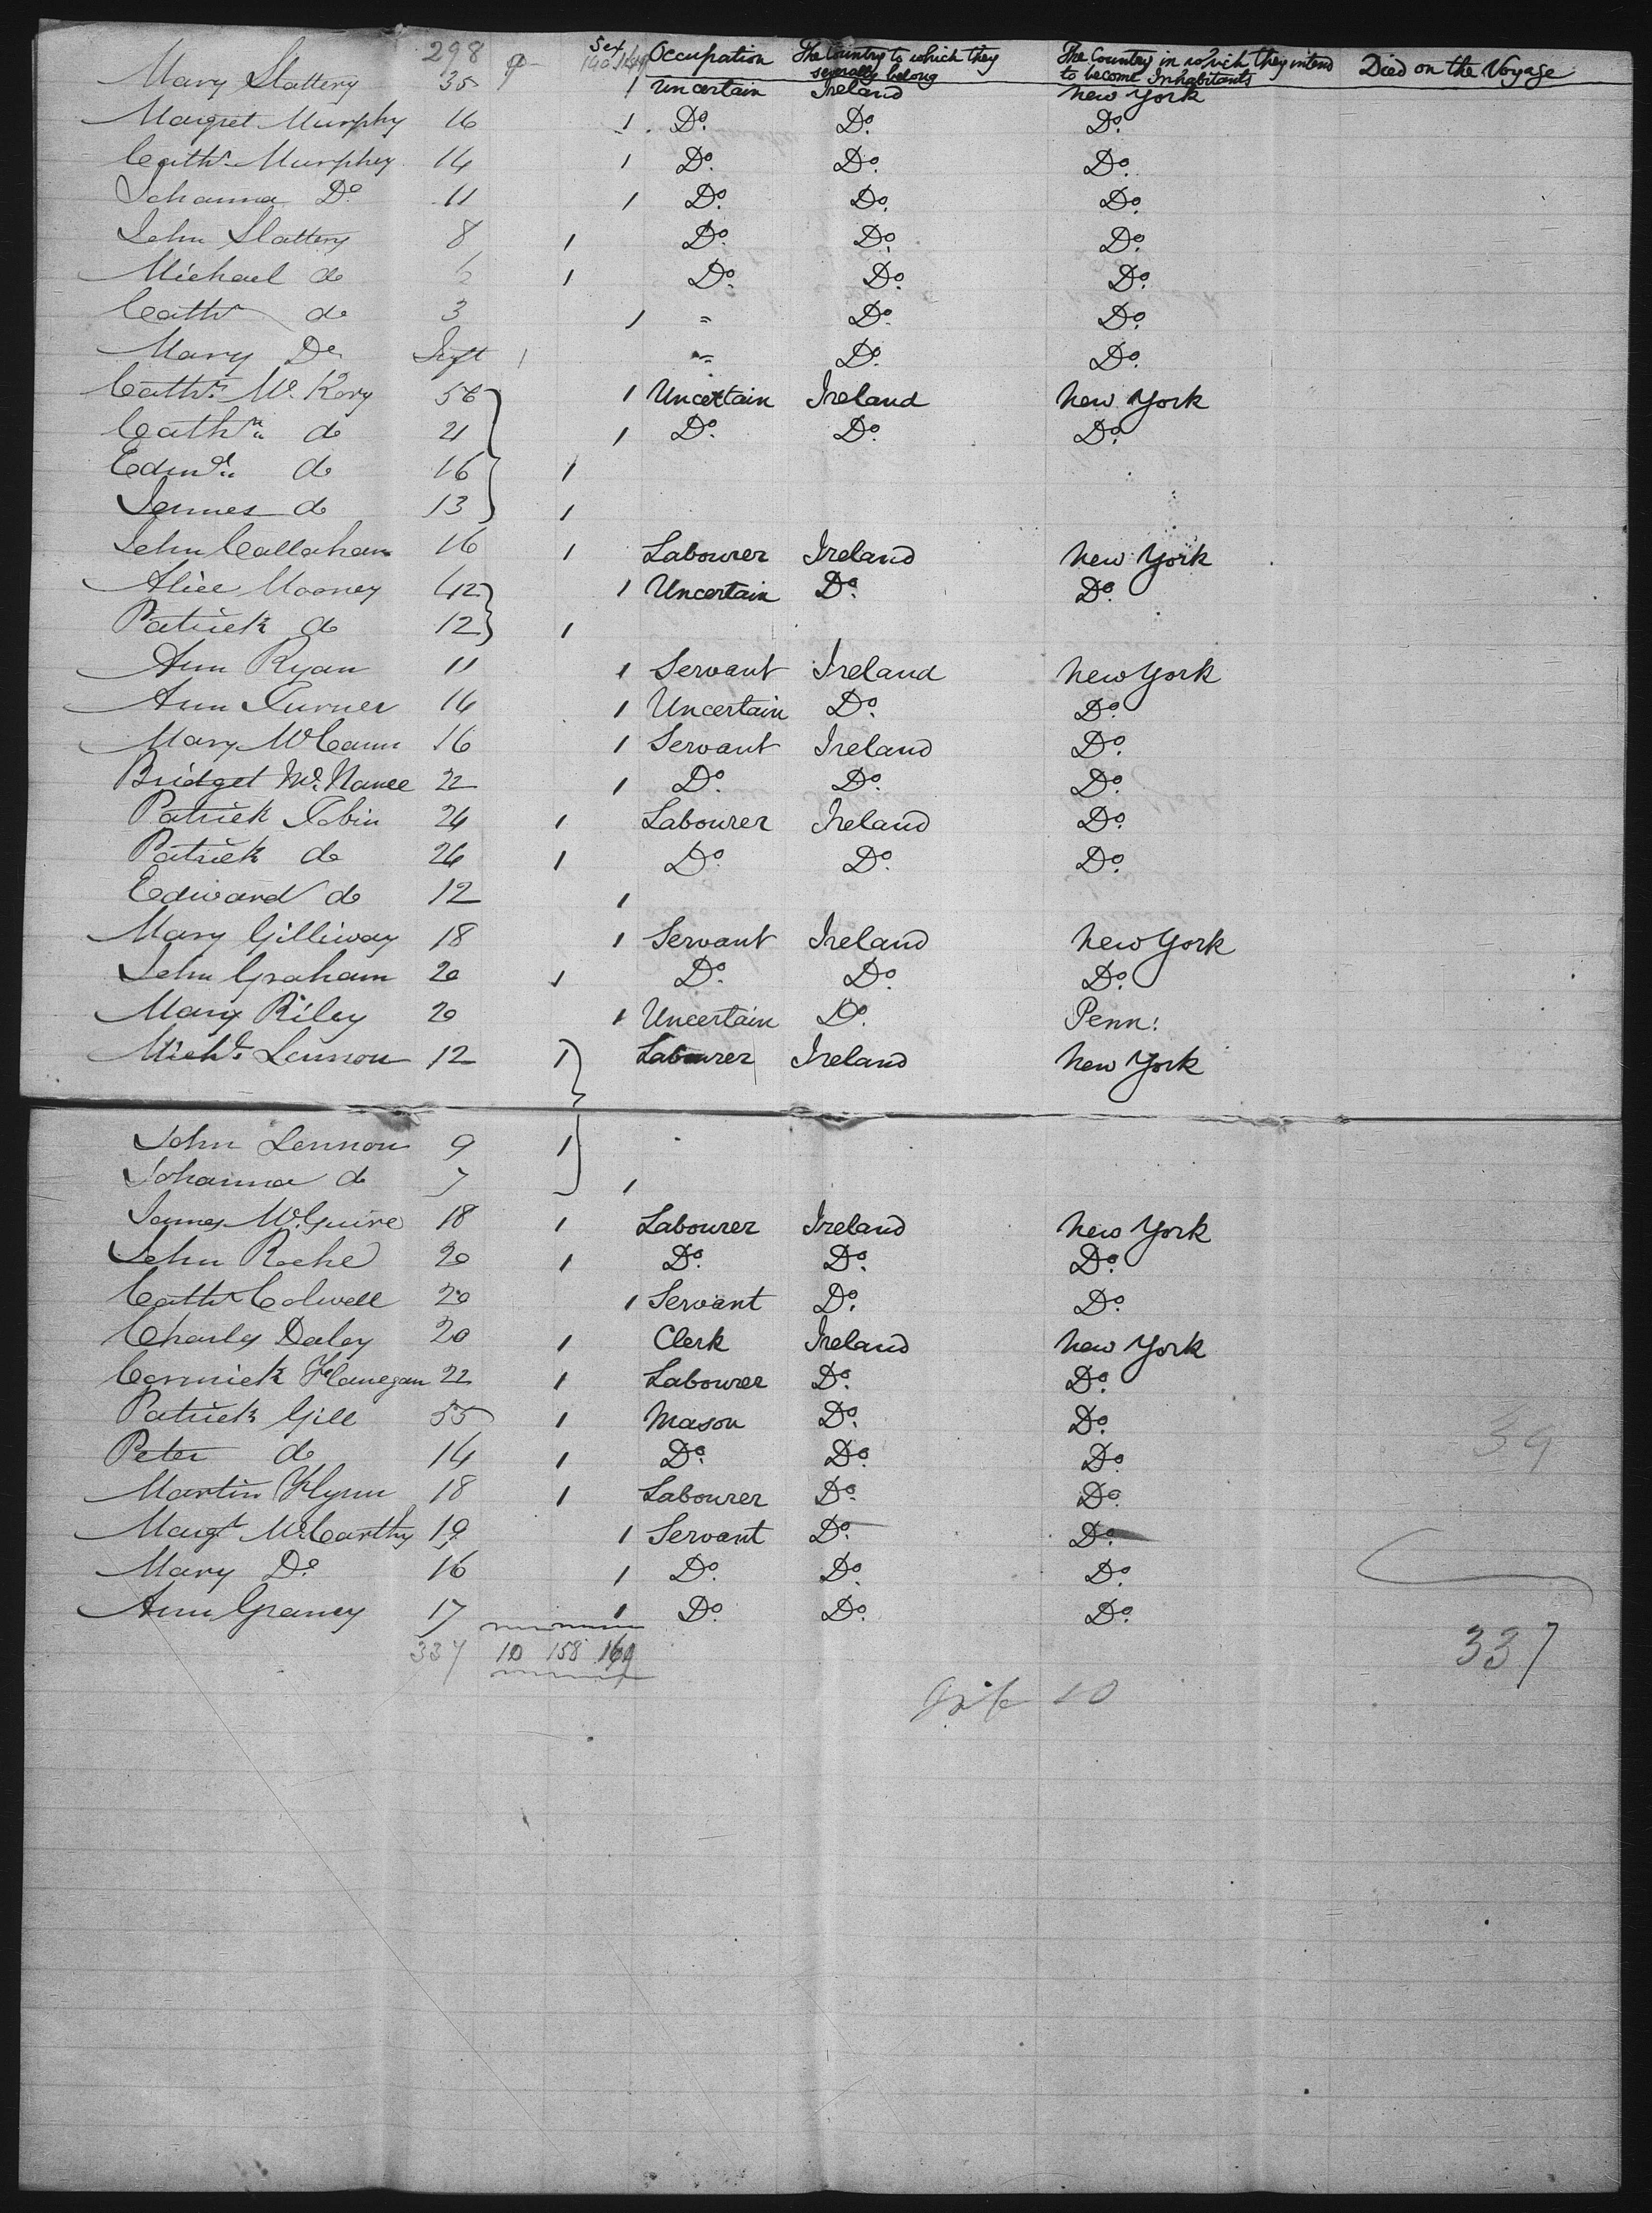 298 Sex Occupation The Country to which they severally belong The Country in which they intend to become Inhabitants Died on the Voyage
Mary Slattery 35 1 Uncertain Ireland New York
Margret Murphy 16 1 Do. Do. Do.
Cathn Murphey 14 1 Do. Do. Do.
Johanna Do 11 1 Do. Do. Do.
John Slattery 8 1 Do. Do. Do.
Michael do 1 Do. Do. Do.
Cathn do 3 1 " Do. Do.
Mary Do 1 " Do. Do.
Cathn Mc Kory 56 1 Uncertain Ireland New York
Cathn do 21 1 Do. Do. Do.
Edmd do 16 1
James do 13 1
John Callahan 16 1 Labourer Ireland New York
Alice Mooney 42 1 Uncertain Do. Do.
Patrick do 12 1
Ann Ryan 11 1 Servant Ireland New York
Ann Turner 14 1 Uncertain Do. Do.
Mary McCann 16 1 Servant Ireland Do.
Bridget Mc Namee 22 1 Do. Do. Do.
Patrick Tobin 24 1 Labourer Ireland Do.
Patrick do 24 1 Do. Do. Do.
Edward do 12 1
Mary Gilliway 18 1 Servant Ireland New York
John Graham 20 1 Do. Do. Do.
Mary Riley 20 1 Uncertain Do. Penn:
Michl Lennon 12 1 Labourer Ireland New York
John Lennon 9 1
Johanna do 7 1
James McGuire 18 1 Labourer Ireland New York
John Roche 20 1 Do. Do. Do.
Cathn Colwell 20 1 Servant Do. Do.
Charles Daley 20 1 Clerk Ireland New York
Cormick Flanegan 22 1 Labourer Do. Do.
Patrick Gill 55 1 Mason Do. Do.
Peter do 14 1 Do. Do. Do.
39
Martin Flynn 18 1 Labourer Do. Do.
Margt McCarthy 19 1 Servant Do. Do.
Mary Do 16 1 Do. Do. Do.
Ann Graney 17 1 Do. Do. Do.
337 10 158 169 337
10